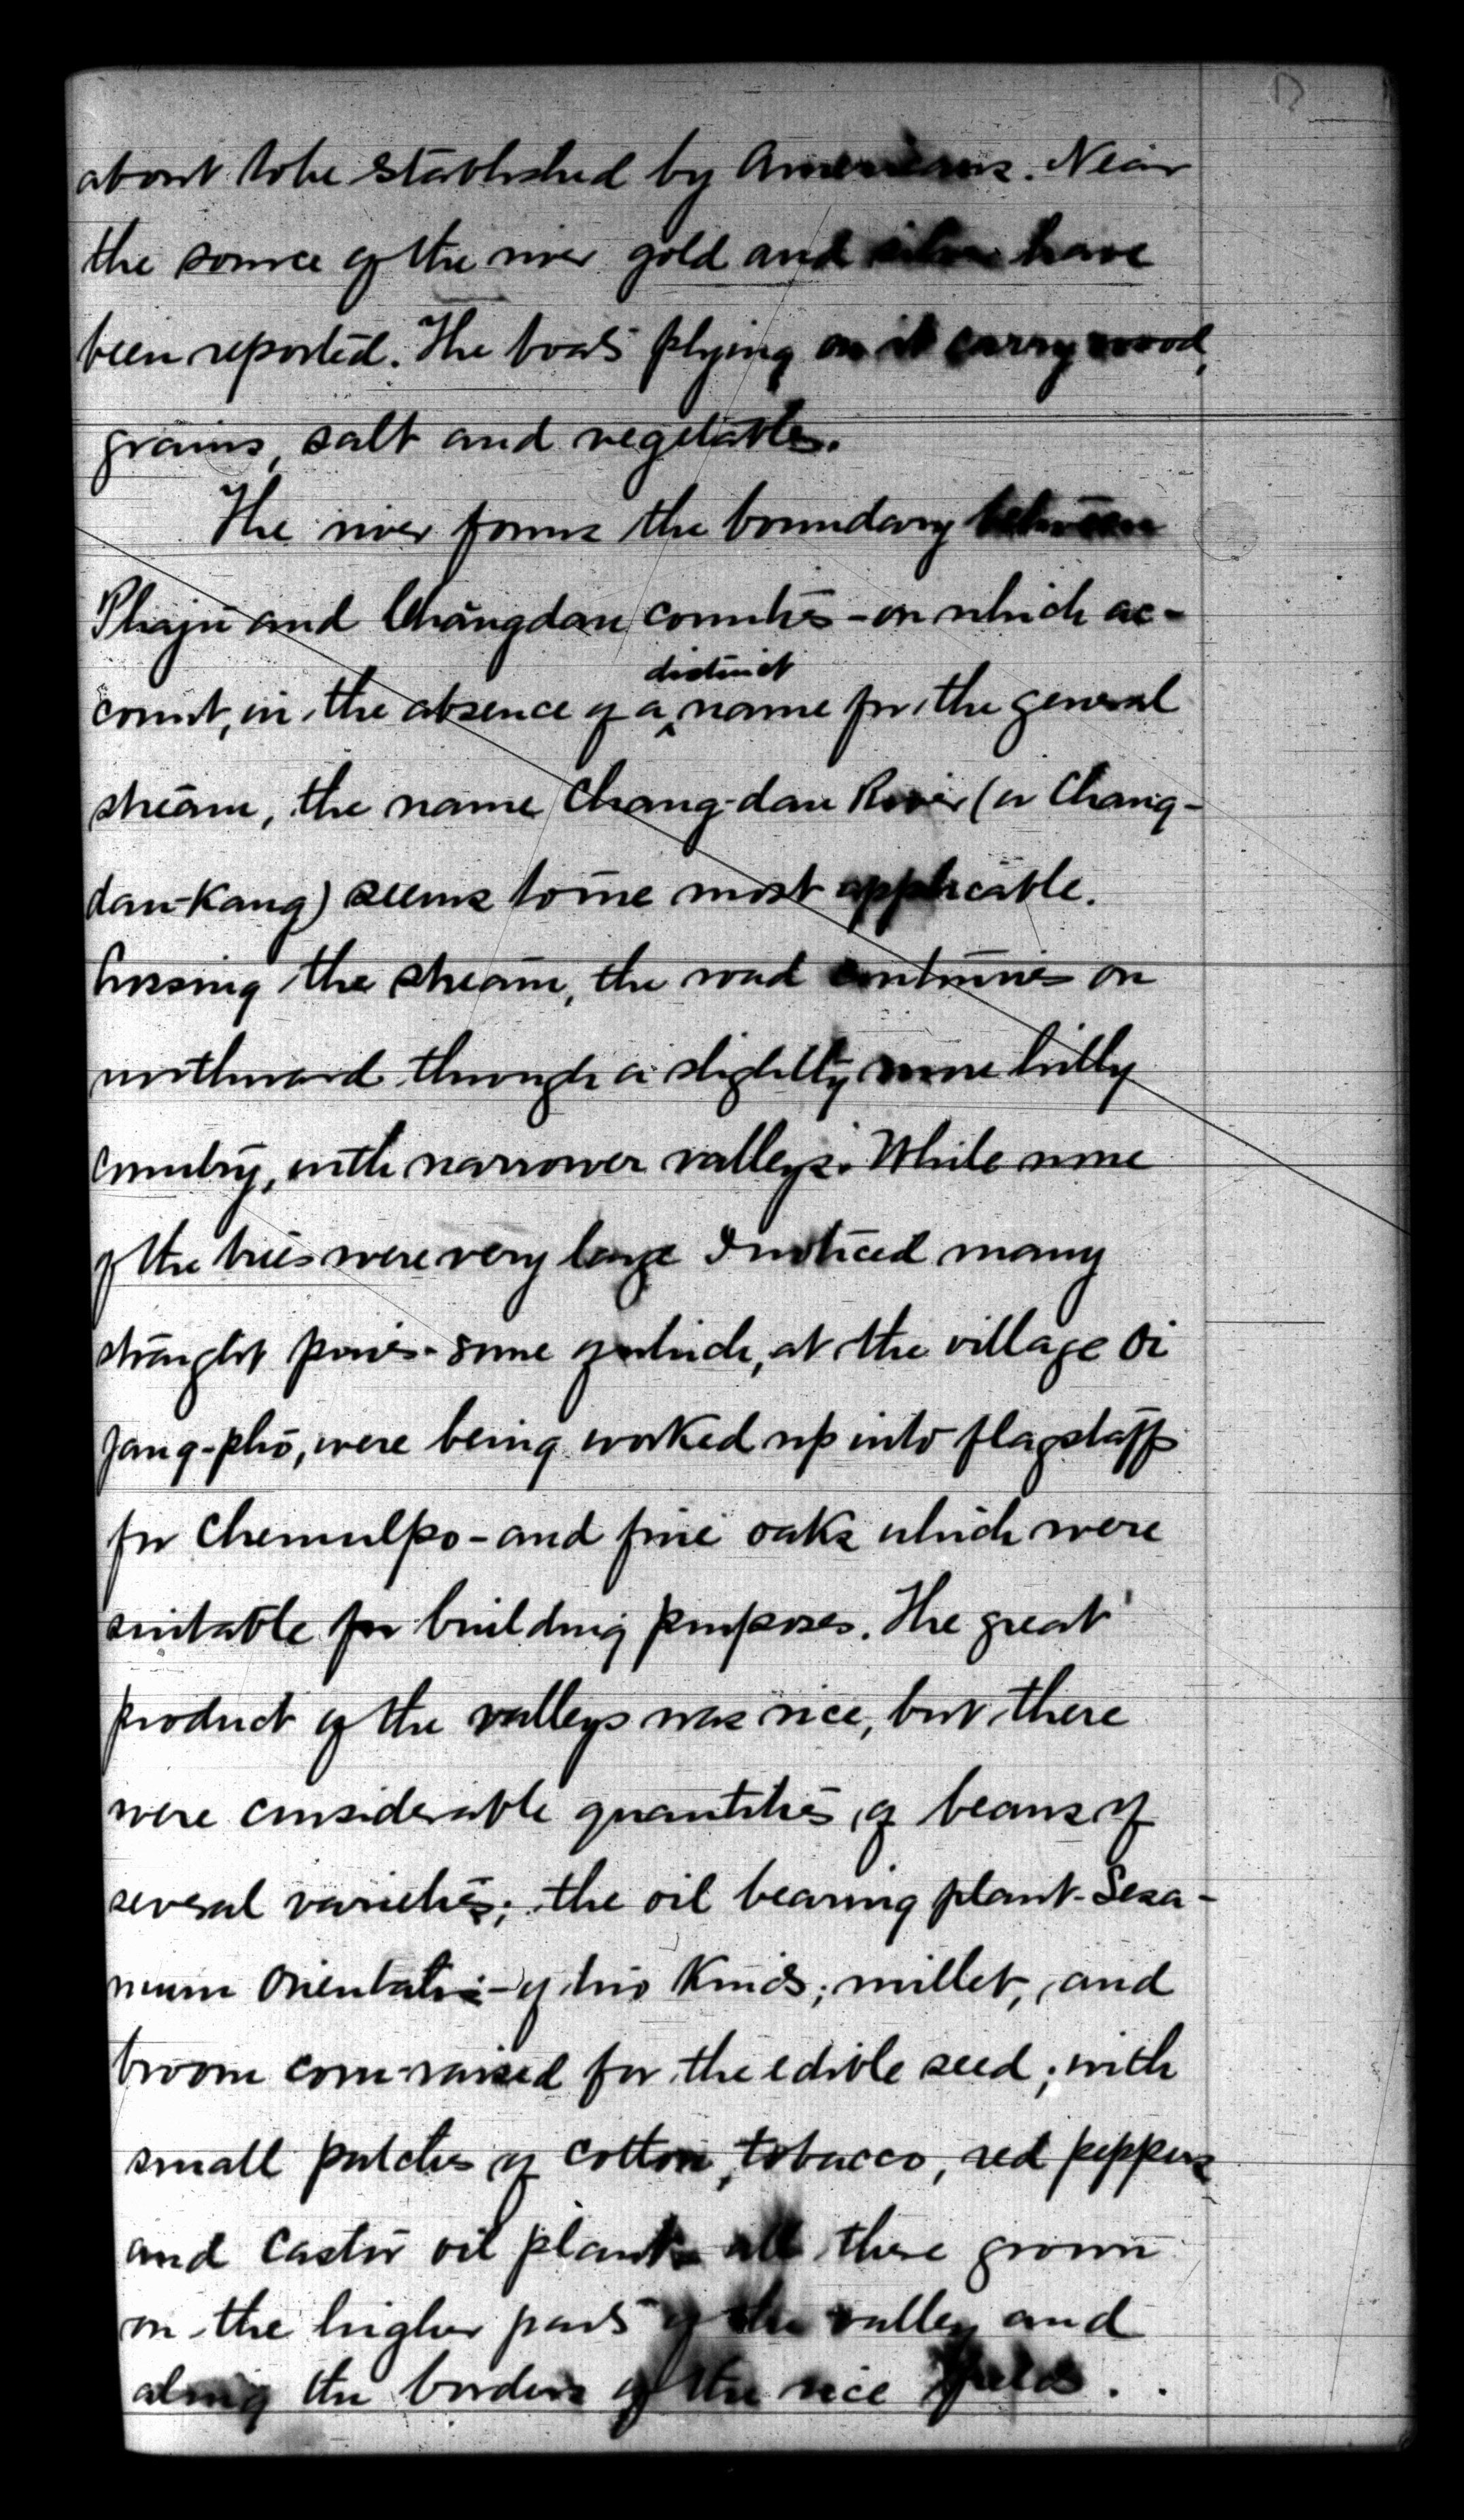 about to be established by Americans. Near
the source of the river gold and silver have
been reported. The boats plying on it carry wood,
grains, salt and vegetables.
The river forms the boundary between
Phajū and Chăngdan counties - on which ac-
count, in the absence of a distinct name for the general
stream, the name Chang-dan River (or Chang-
dan-Kang) seems to me most applicable.
Crossing the stream, the road continues on
northward through a slightly more hilly
country, with narrower valleys. While none
of the trees were very large I noticed many
straight pines - some of which, at the village Oi
jang-phō, were being worked up into flagstaffs
for Chemulpo - and fine oaks which were
suitable for building purposes. The great
product of the valleys was rice, but there
were considerable quantities of beans of
several varieties; the oil bearing plant - Sesa-
mum Orientalis - of two kinds; millet, and
broom corn - raised for the edible seed; with
small patches of cotton, tobacco, red peppers
and castor oil plants all these grown
on the higher parts of the valley and
along the borders of the rice fields . .